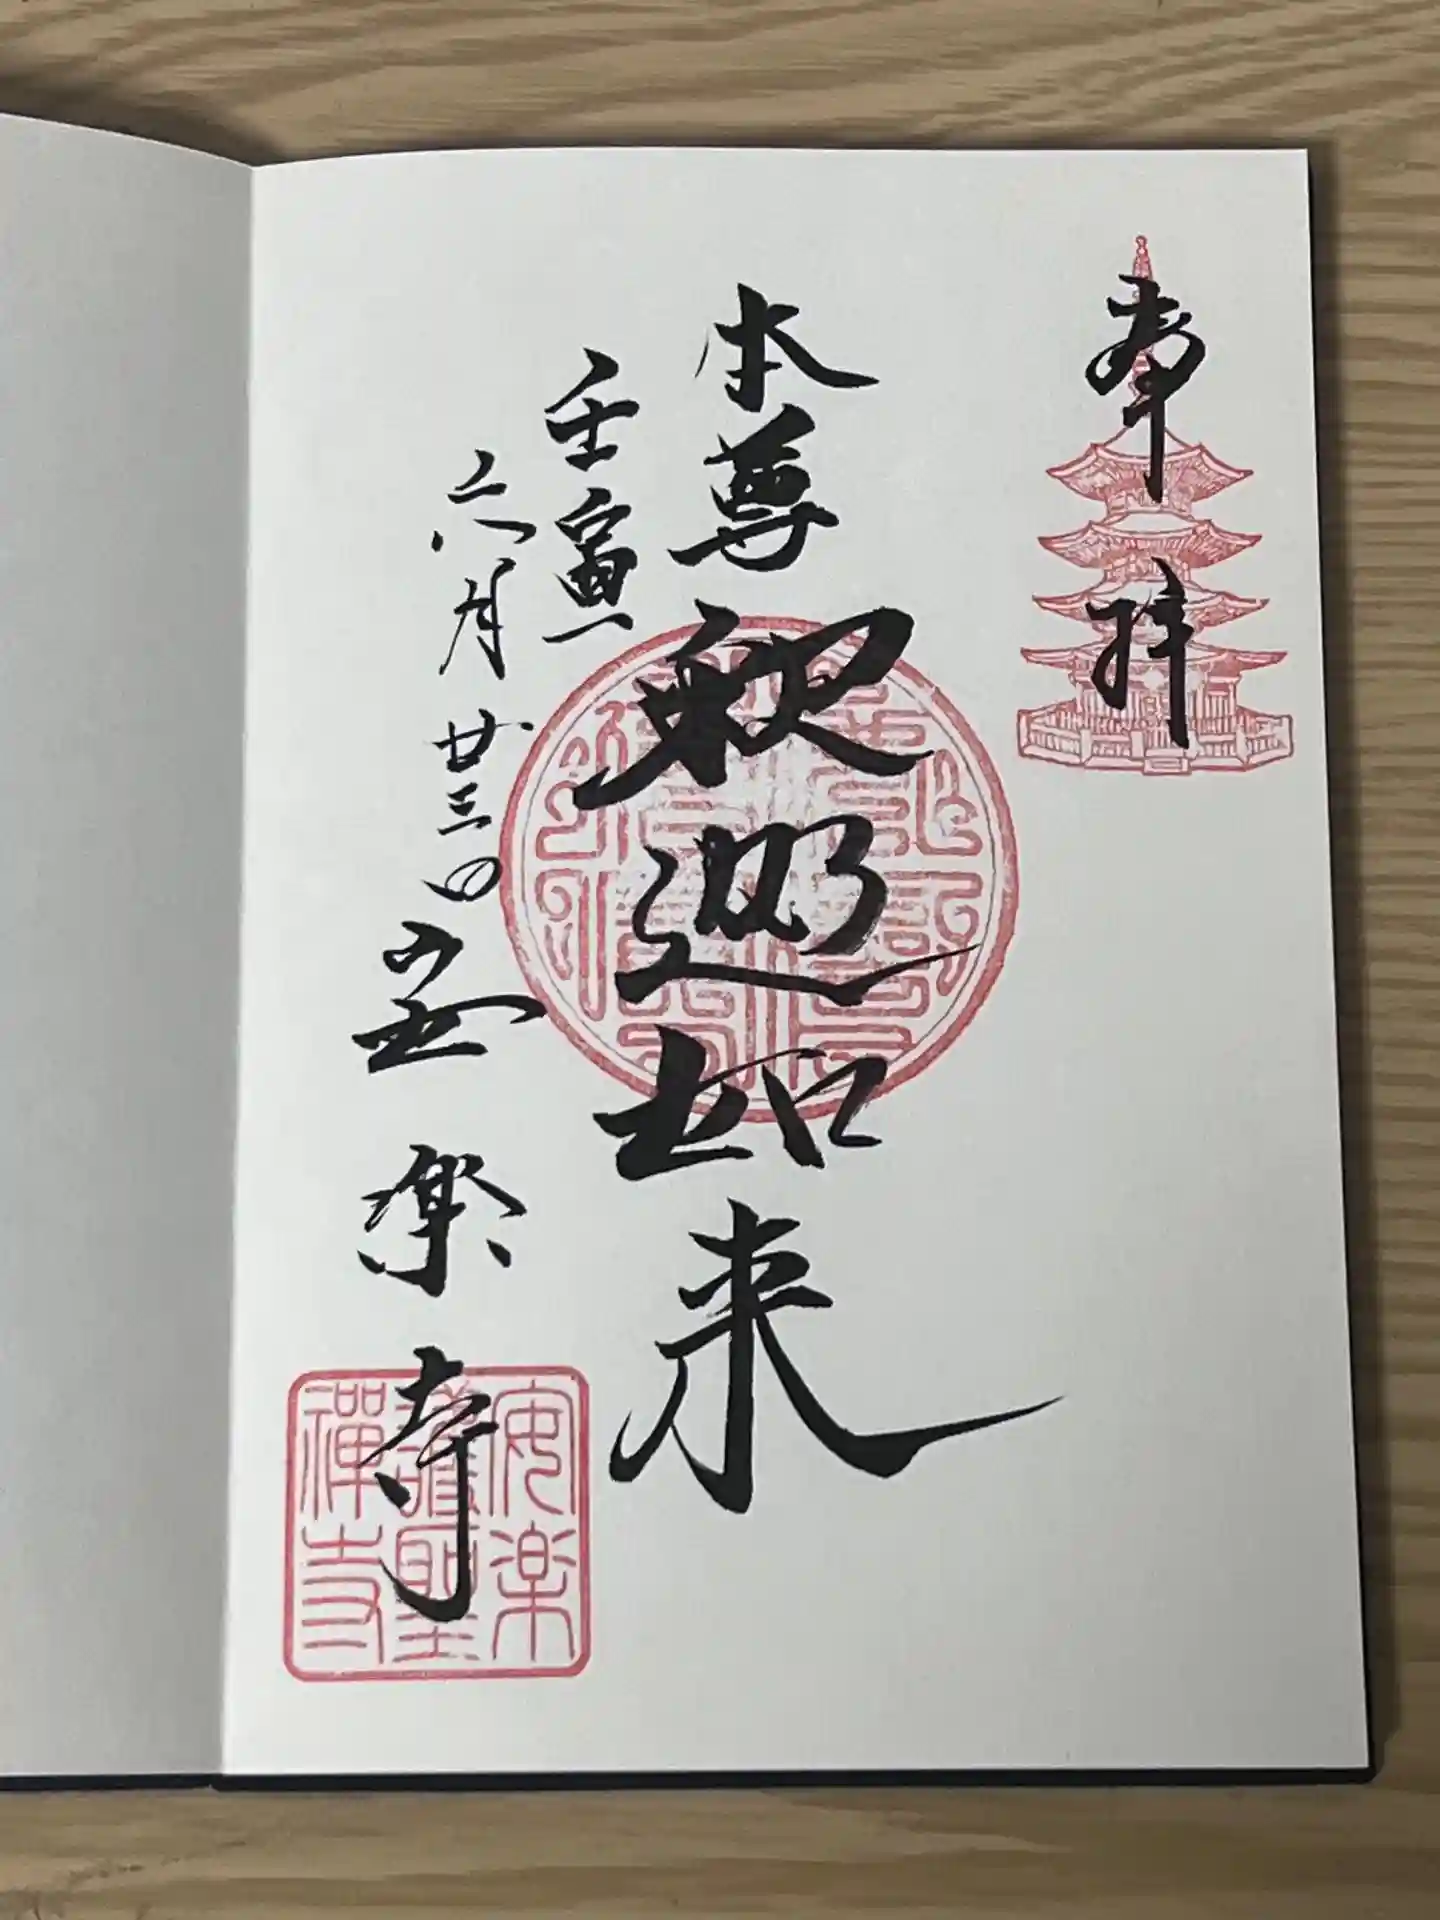 奉拝
本尊
釈迦如来
壬寅
六月廿三日
安楽寺
安楽
護聖
禅寺